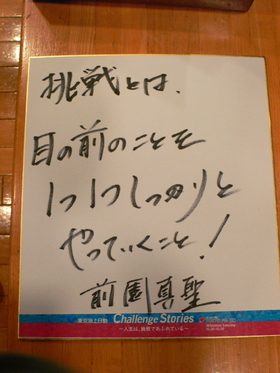 挑戦とは、
目の前のことを
1つ1つしっかりと
やっていくこと!
前園真聖
東京海上日動 Challenge Stories
~人生は、挑戦であふれている~